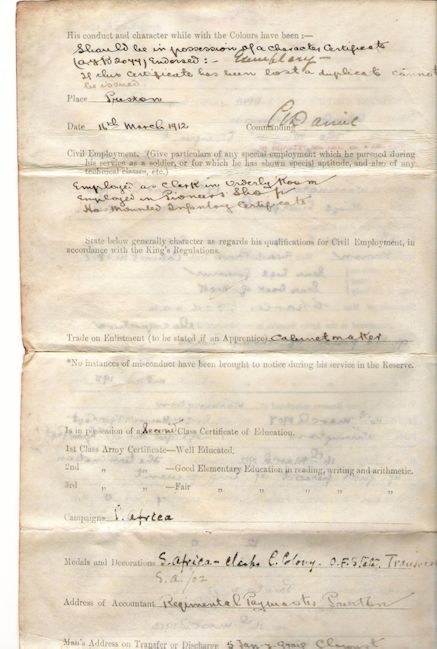 His conduct and character while with the Colours have been :—
Should be in possession of a Character Certificate
(A.F.B 2077) Endorsed :- Exemplary —
If this Certificate has been lost a duplicate cannot
be issued.
Place Preston
Date 14th March 1912 Commanding
Civil Employment. (Give particulars of any special employment which he pursued during
his service as a soldier, or for which he has shown special aptitude, and also of any
technical classes, etc.)
Employed as Clerk in Orderly Room
Employed in Pioneers Shop
Has Mounted Infantry Certificate
State below generally character as regards his qualifications for Civil Employment, in
accordance with the King's Regulations.
Trade on Enlistment (to be stated if an Apprentice) Cabinetmaker
*No instances of misconduct have been brought to notice during his service in the Reserve.
Is in possession of a Second Class Certificate of Education.
1st Class Army Certificate—Well Educated.
2nd „ „ —Good Elementary Education in reading, writing and arithmetic.
3rd „ „ —Fair „ „ „ „ „
Campaigns S. Africa
Medals and Decorations S. Africa - Clasps C. Colony. O.F. State.
S.A. /02
Address of Accountant Regimental Paymaster Preston
Man's Address on Transfer or Discharge 5